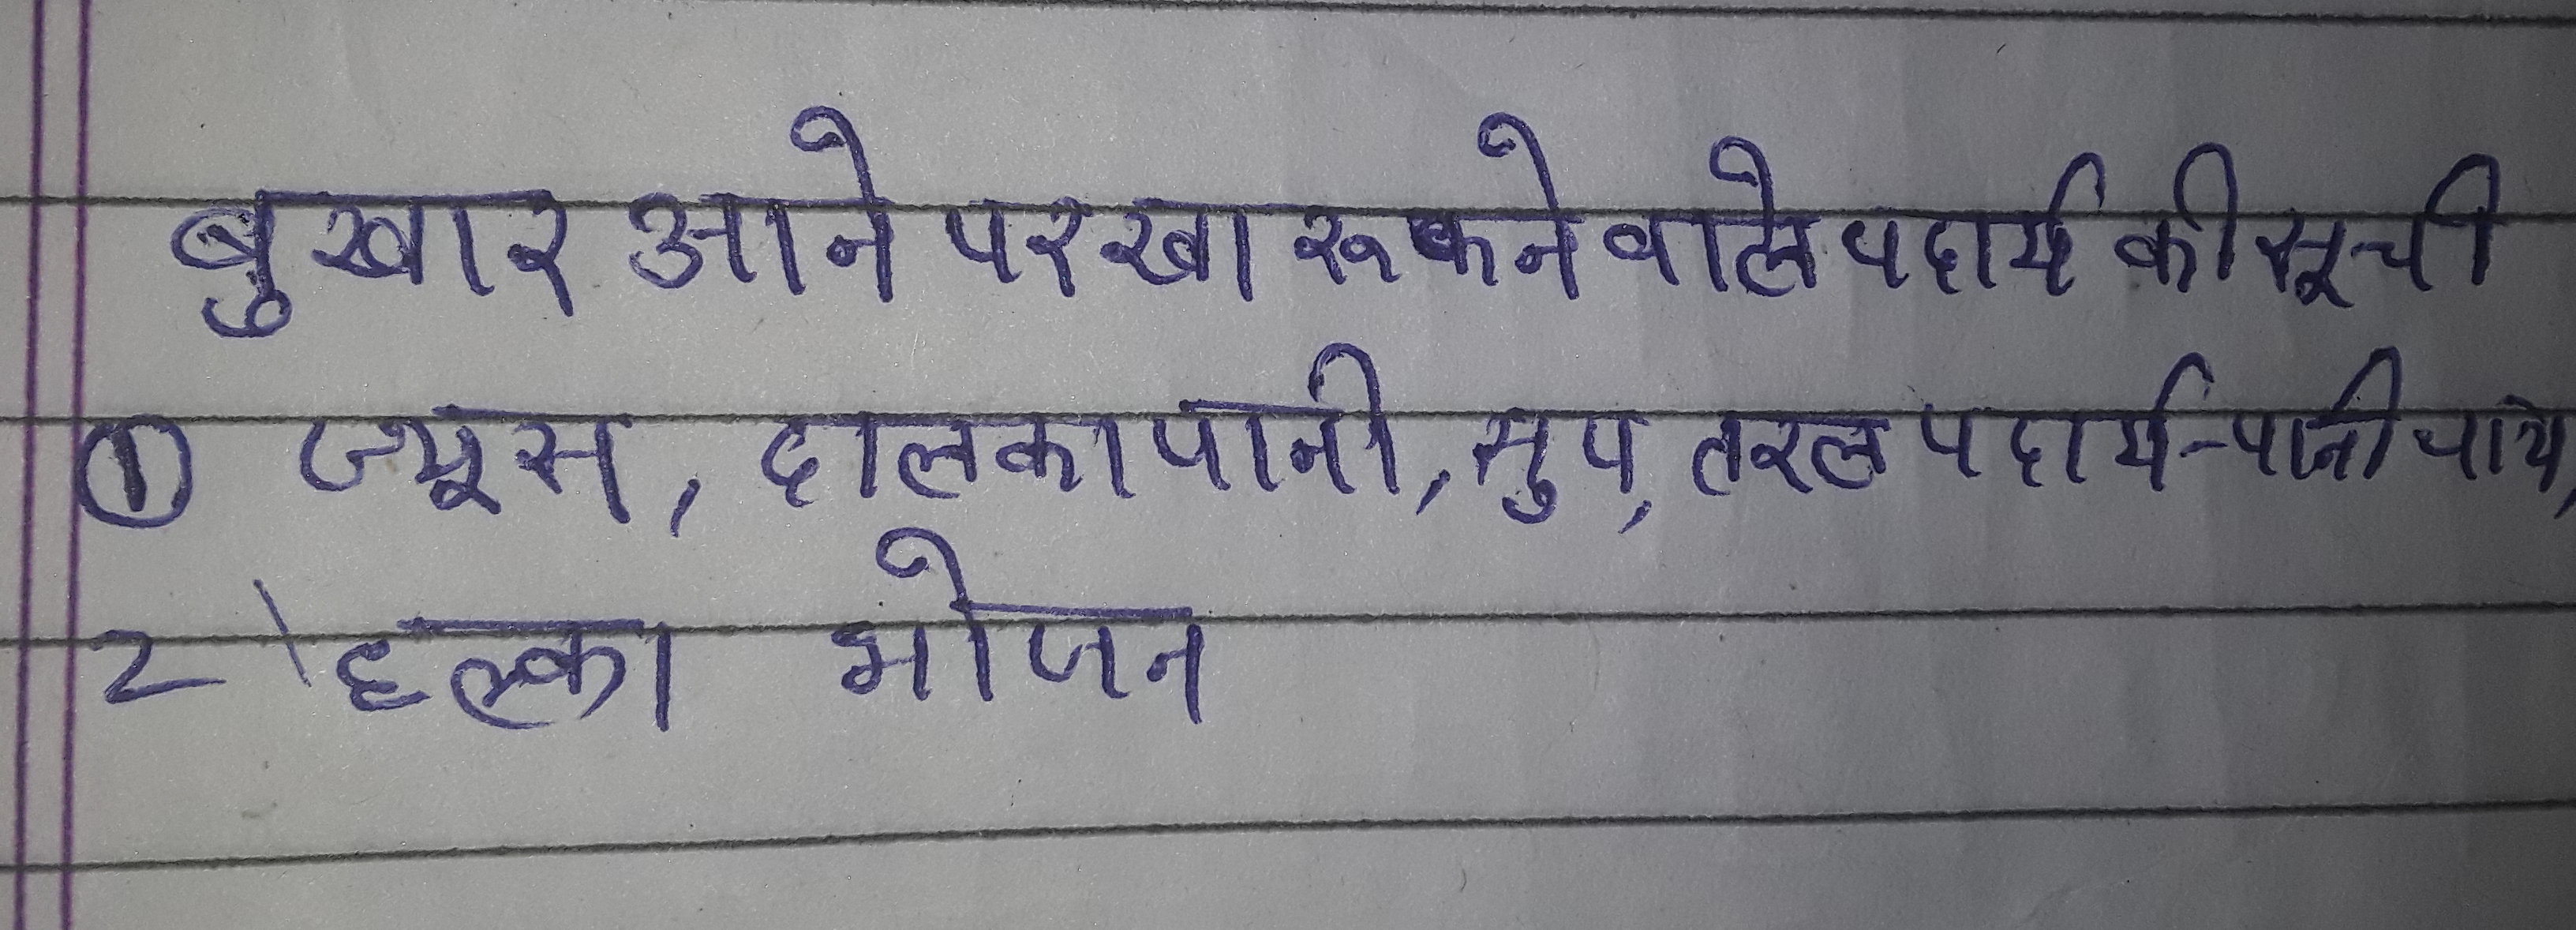 बुखार आने पर खा सकने वाले पदार्थ की सूची
① ज्यूस, दालका पानी, सुप, तरल पदार्थ-पानी चाय,
2 हल्का भोजन